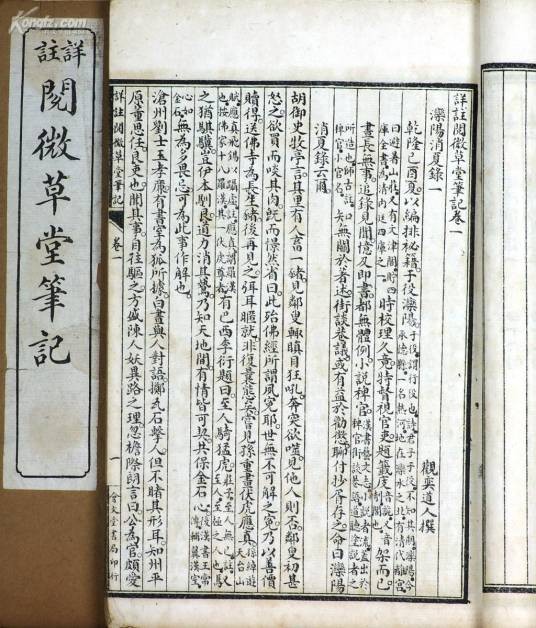 詳註
閱微草堂筆記
詳註閱微草堂筆記卷一
灤陽消夏錄一
觀奕道人撰
乾隆己酉夏以編排秘籍于役灤陽
時校理久竟特督視官吏題籤庋架而已
晝長無事追錄見聞憶及即書都無體例小說稗官漢書藝文志小說者流蓋出於
稗官知無關於著述街談巷議或有益於勸懲聊付抄胥存之命曰灤陽
消夏錄云爾
胡御史牧亭言其里有人畜一豬見鄰叟輒瞋目狂吼奔突欲噬見他人則否鄰叟初甚
怒之欲買而啖其肉既而憬然省曰此殆佛經所謂夙冤耶世無不可解之冤乃以善價
贖得送佛寺為長生豬後再見之弭耳暱就非復曩態矣嘗見孫重畫伏虎應真孫綽遊天台山
有巴西李衍題曰至人騎猛虎馭
之猶騏驥豈伊本馴良道力消其鷙乃知天地間有情皆可契共保金石心後漢書王常傳輔翼漢室
心如金石無為多畏忌可為此事作解也
滄州劉士玉孝廉有書室為狐所據白晝與人對語擲瓦石擊人但不睹其形耳知州平
原董思任良吏也聞其事自往驅之方盛陳人妖異路之理忽檐際朗言曰公為官頗愛
詳註閱微草堂筆記
卷一
一
會文堂書局印行